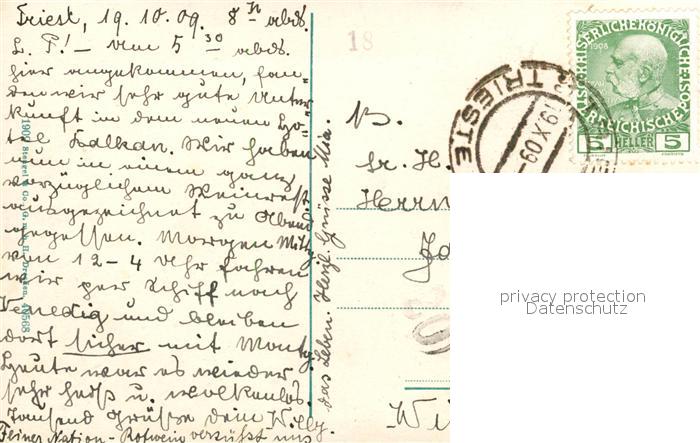 Triest, 19.10.09. 8 h abds.
L. F.! – Um 5 30 abds.
hier angekommen, fan-
den wir sehr gute Unter-
kunft in dem neuen Ho-
tel Balkan. Wir haben
nun in einem ganz
vorzüglichem Weinrest.
ausgezeichnet zu Abend
gegessen. Morgen Mittg
von 12–4 Uhr fahren
wir per Schiff nach
Venedig und bleiben
dort sicher mit Montg.
Heute war es wieder
sehr heiß u. wolkenlos.
Tausend Grüße dein Willy.
Feiner Nation-Rotwein versüßt uns
das Leben. Herzl. Grüsse Mia.
1909 Stengel & Co., G. m. b. H., Dresden, 40568
18
KAISERLICHE KÖNIGLICHE
ÖSTERREICHISCHE POST
1908
5 HELLER 5
TRIESTE
19 X 09
B.
Sr. H.
Herrn
Wi
privacy protection
Datenschutz